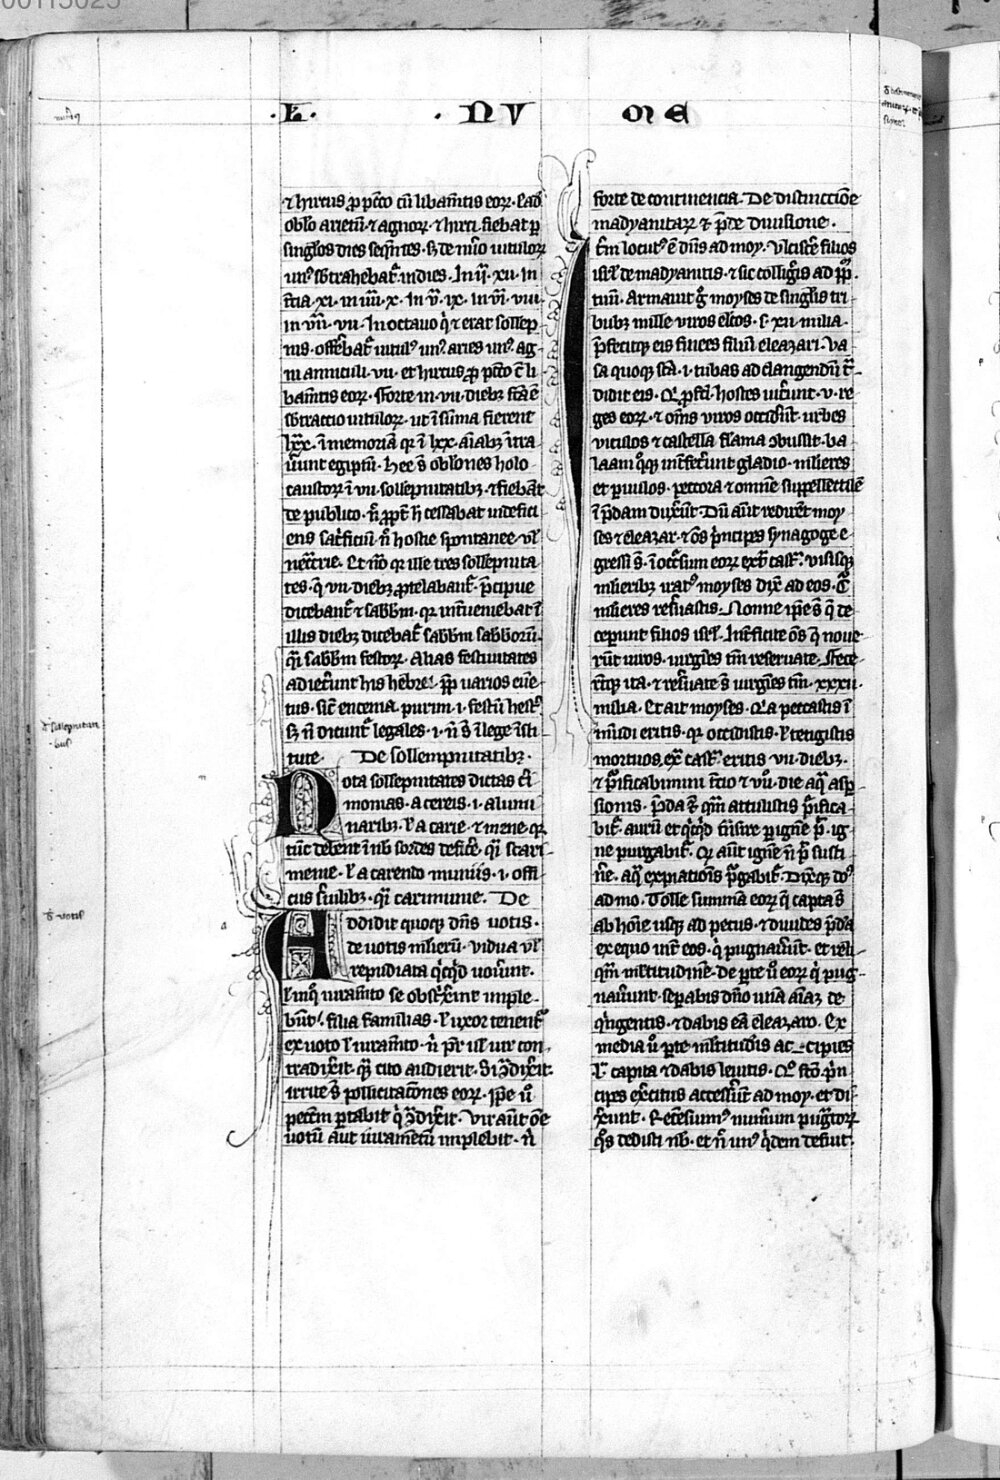 00113025
.L. . NV ME
⁊ hircus ꝓ pctō cū libamītis eoꝝ. Ead
oblō arietū ⁊ agnoꝝ ⁊ hirci fiebat ꝑ
singlos dies seqn̄tes. Sꝫ de nūo uituloꝝ
unꝰ sbtrahebat᷑ in dies. In .ij. xii. in
t̄cia .xi. in iiij. x. In .v. ix. in vj. viii.
in vij. vii. In octauo q̇ ⁊ erat sollep
nis. offēbat᷑ uitulꝰ unꝰ aries unꝰ. ag
ni anniculi. vii. et hircus ꝓ pctō c̄ li
bamītis eoꝝ. Sforte in .vii. diebꝫ fc̄a ē
sbtractio uituloꝝ. ut ī sūma fierent
lxx. ī memoriā qr ī lxx. aīabꝫ ītra
uūnt egiptū. hec s̄ oblōnes holo
caustoꝝ ī vii. sollepnitatibꝫ. ⁊ fiebāt
de publico. n̄ ꝓpt̄ h̄ cessabat indefici
ens sac̄ficiū n̄ hostie spontanee ul̓
nec̄cie. Et nō qr ille tres sollepnita
tes. q̄ vii. diebꝫ ꝓtelabant᷑. p̄cipue
dicebant᷑ ⁊ sabbm̄. qr inueniebat᷑ ī
illis diebꝫ dicebat᷑ sabbm̄ sabboꝝ.
q̄i sabbm̄ festoꝝ. Alias festiuitates
adiec̄unt his hebrei. ꝓp̄ uarios euē
tus. sic̄ encenia. purim .i. festū hest̄.
Sꝫ n̄ dicunt᷑ legales .i. n̄ s̄ ī lege īsti
tute. De sollempnitatibꝫ.
Nota sollepnitates dictas c̄i
monias. a cereis .i. a lumi
naribꝫ. ł a carie. ⁊ mene. qr
tūc debent in nb̄ sordes defic̄e. q̄i scari
menie. ł a carendo muniis .i. offi
ciis s̄uilibꝫ. q̄i carimunie. De
Addidit quoqꝫ dn̄s uotis.
de uotis ml̓ierū. vidua ul̓
repudiata q̇cq̇d uouīnt.
l̓inq̄ iuramīto se obst̄xīnt imple
būt. filia familias. ł uxor tenent᷑
ex uoto ł iuramīto. n̄ pr̄ ul̓ uir con
tradix̄it. q̄m cito audierit. Si ꝯ̄dix̄it
irrite s̄ pollicitacōnes eoꝝ. ip̄e ū
pctm̄ portabit q̇ ꝯ̄dix̄it. Vir aūt oē
uotū aut iuramētū implebit. n̄
forte de continencia. De distinccōe
madyanitaꝝ ⁊ p̄de diuisione.
Itm̄ locutꝰ ē dn̄s ad moy. Vlcisc̄e filios
isrl̓ de madyanitis. ⁊ sic collig̓is ad pp̄l̓
tuū. Armauit g̓ moyses de singlis tri
bubꝫ mille viros elc̄os .s. xii. milia.
p̄fecitqꝫ eis finees filiū eleazari. Va
sa quoqꝫ scā .i. tubas ad clangendū t̄
didit eis. Qi ꝓfc̄i. hostes uic̄unt .v. re
ges eoꝝ. ⁊ om̄s viros occidūt. urbes
viculos ⁊ castella flama ꝯbussit. ba
laam q̊qꝫ int̄fec̄unt gladio. ml̓ieres
et puulos. peccora ⁊ omne suppellectilē
ī p̄dam dux̄ūt. Dū aūt rediret moy
ses ⁊ eleazar. ⁊ oēs p̄ncipes synagoge e
gressi s̄. ī occ̄sum eoꝝ ext̄ cast̄. visisqꝫ
ml̓ieribꝫ iratꝰ moyses dix̄ ad eos. Cur
ml̓ieres res̄uastis. Nonne ip̄e s̄ q̄ de
ceperunt filios isrl̓. Int̄ficite oēs q̄ noue
rūt uiros. uirgīes tm̄ reseruate. Fece
rūtqꝫ ita. ⁊ res̄uate s̄ uirgīes tm̄. xxxii.
milia. Et ait moyses. Qi a peccastis ī
inmūdi eritis. qr occidistis. ł tetigistis
mortuos. ex̄ cast̄ eritis vii. diebꝫ.
⁊ p̄ificabimini t̄cio ⁊ vii. die aq̄ asp̄
sionis. p̄da ⁊ qm̄ attulistis p̄ifica
bit᷑. aurū et q̇cq̇d t̄nsire ꝑ ignē p̄t. ig
ne purgabit᷑. Qi aūt ignē n̄ p̄t susti
n̄e. aq̄ expiatiōis p̄gabit᷑. Dixitqꝫ dn̄s
ad mo. Tolle summā eoꝝ q̄ capta s̄
ab hoīe usqꝫ ad pecus. ⁊ diuides p̄dā
ex equo int̄ eos. q̇ pugnauūt. et reli
qm̄ ml̓titudinē. de ꝑte ū eoꝝ q̇ pug
nauūnt. seꝑabis dn̄o unā aīaꝫ de
q̇ngentis. ⁊ dabis eā eleazaro. Ex
media ū ꝑte ml̓titudīs accipies
l. capita ⁊ dabis leuitis. Qo fc̄o. p̄n
cipes ex̄citus access̄ūt ad moy. et di
x̄unt. Recēsuimꝰ num̄um pug̓toꝝ
q̊s dedisti nb̄. et n̄ unꝰ q̇dem defuit.